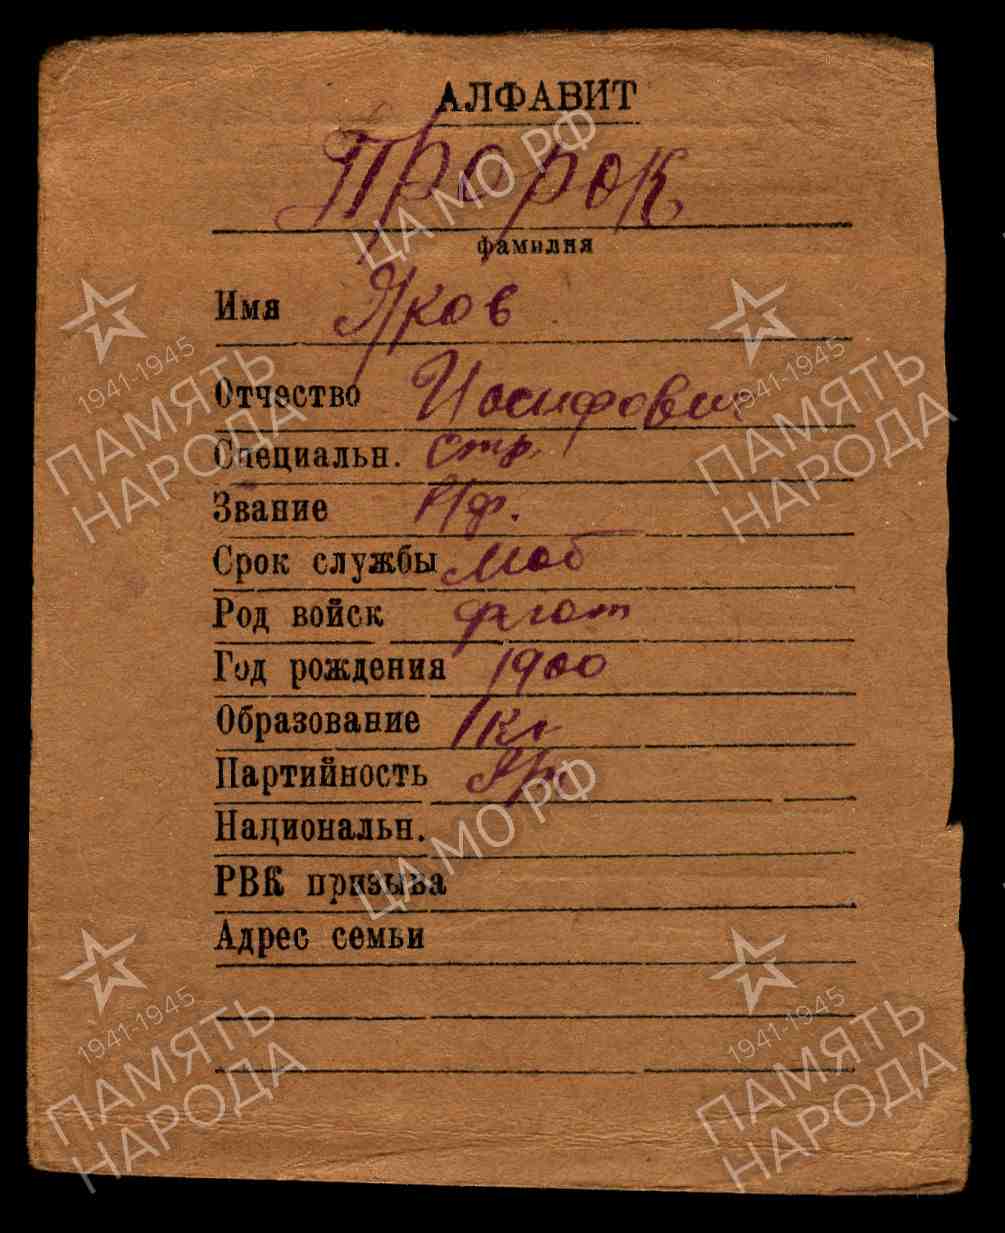 АЛФАВИТ
Пророк
фамилия
Имя Яков
Отчество Иосифович
Специальн. стр.
Звание р/ф.
Срок службы моб
Род войск
Год рождения 1900
Образование 1 кл
Партийность
Национальн.
РВК призыва
Адрес семьи
ЦА МО РФ
1941-1945
ПАМЯТЬ
НАРОДА
1941-1945
ПАМЯТЬ
НАРОДА
ЦА МО РФ
1941-1945
ПАМЯТЬ
НАРОДА
1941-1945
ПАМЯТЬ
НАРОДА